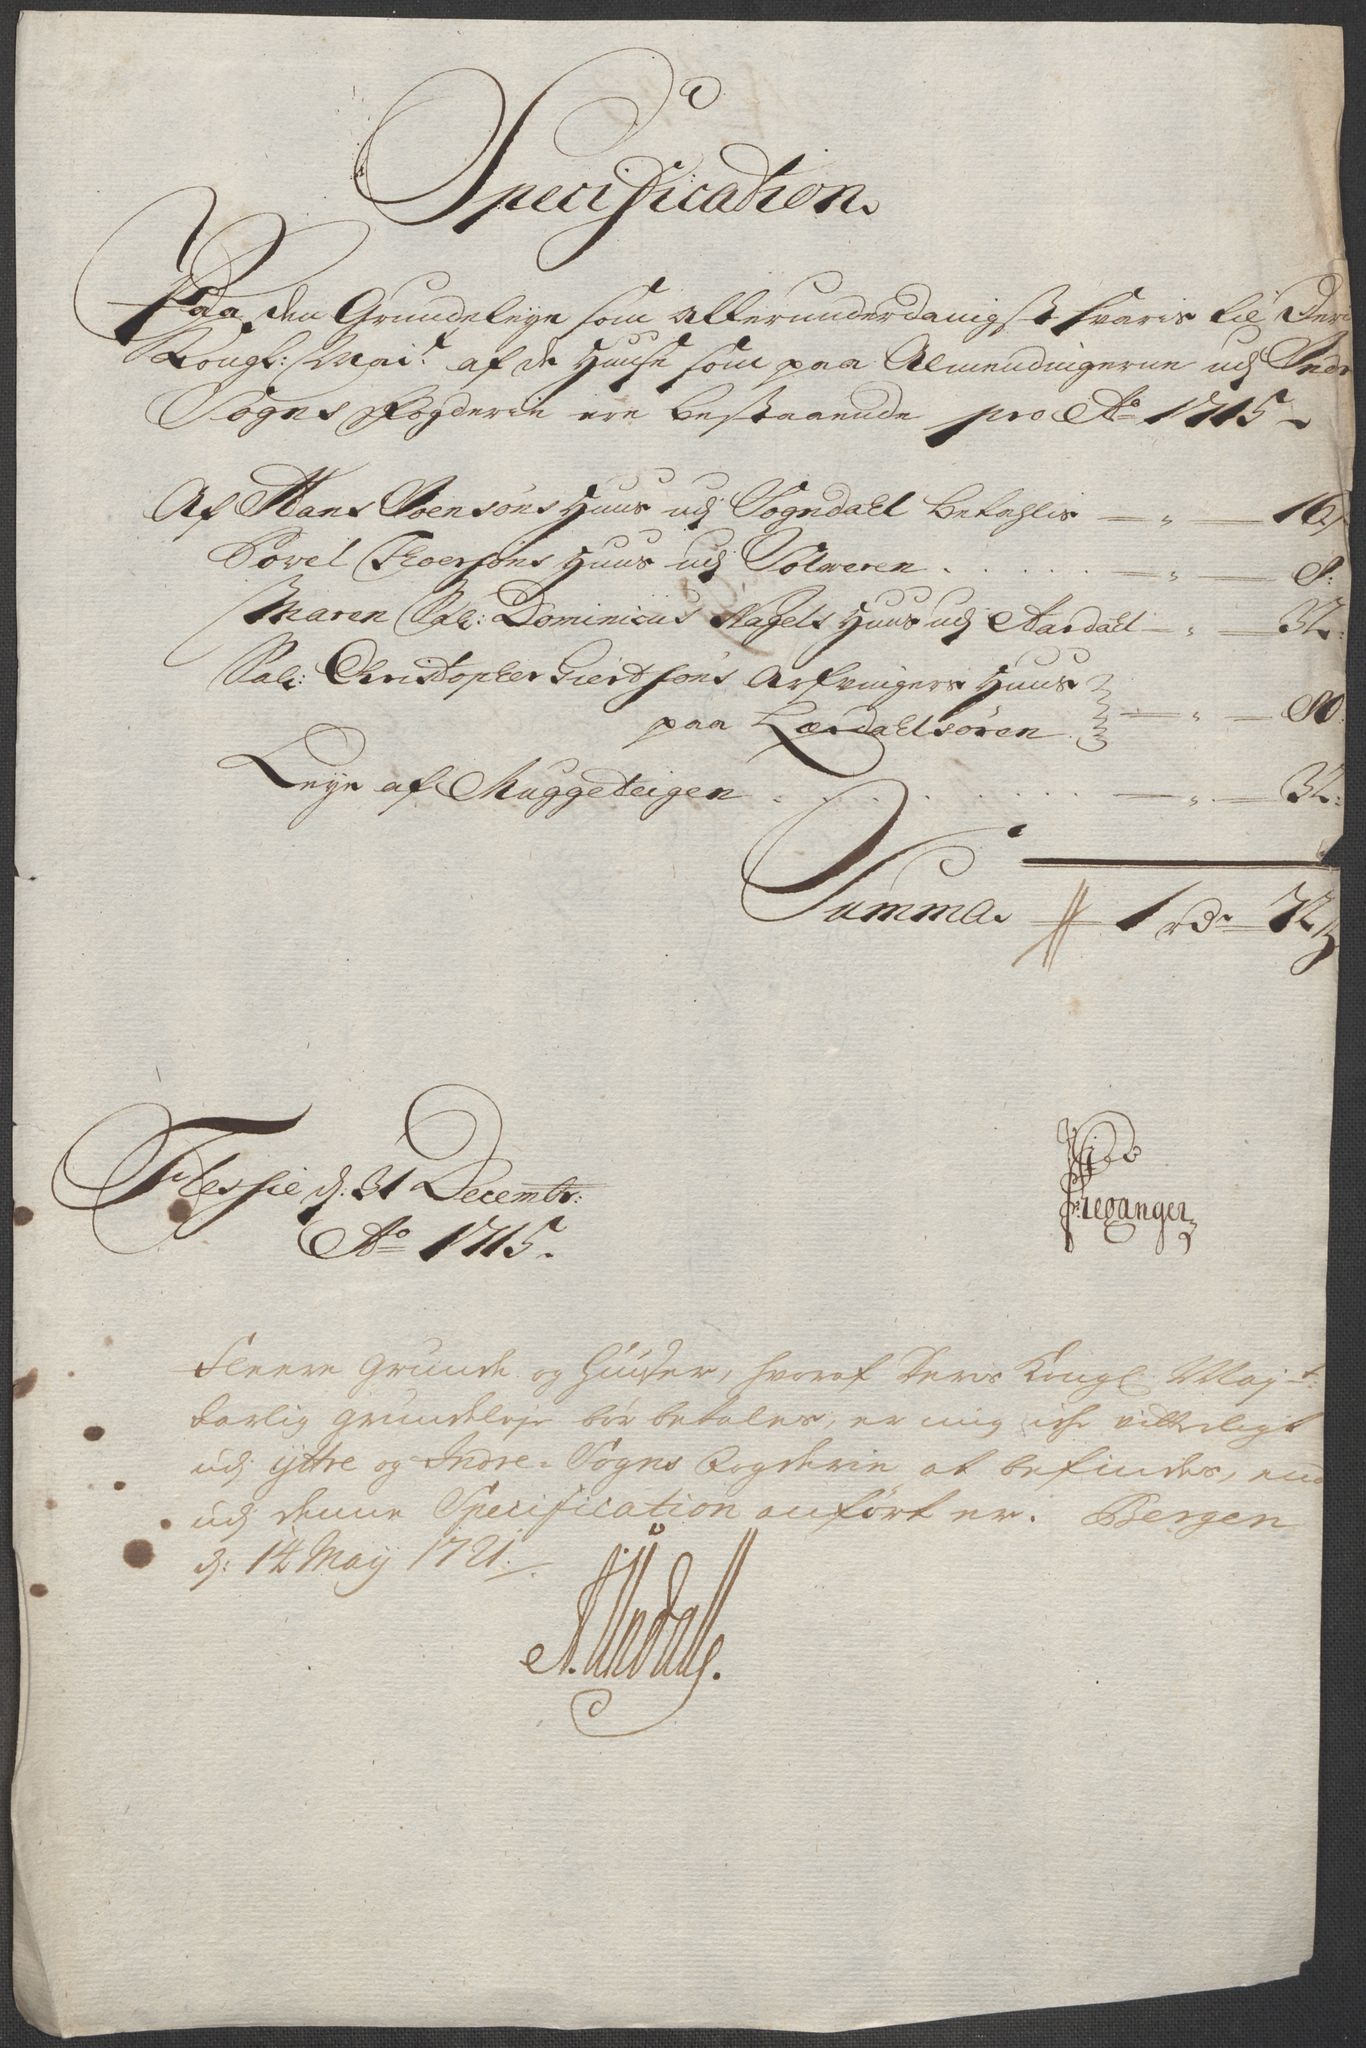 Specification.
Paa den Grundeleye som allerunderdanigst svaris til Deris
Kongl: Mai.t af de Huuse som paa Almendingerne udj Indre
Sogns Fogderie ere bestaaende pro Ao 1715
Af Hans Joensøns Huus udj Sogndahl betahlis — " — 16 s
Povel Thoersøns Huus udj Solvoren . . . . — " — 8:
Maren Sal: Dominicus Nagels Huus udj Aardahl — " — 32:
Sal: Christopher Giertsøns Arfvingers Huus
paa Lærdahlsøren — " — 80:
Leye af Muggeteigen . . . . . . — " — 32:
Summa. 1 rdr 72 s
Flessie d: 31 Decembr:
Ao 1715.
Fleere grunde og Huuser, hvoraf Deris Kongl. Maj.t:
aarlig grundeleje bør betales, er mig iche vitterligt
udj yttre og Indre Sogns Fogderie at befindes, end
udj denne Specification anført er. Bergen
d: 14 Maij 1721.